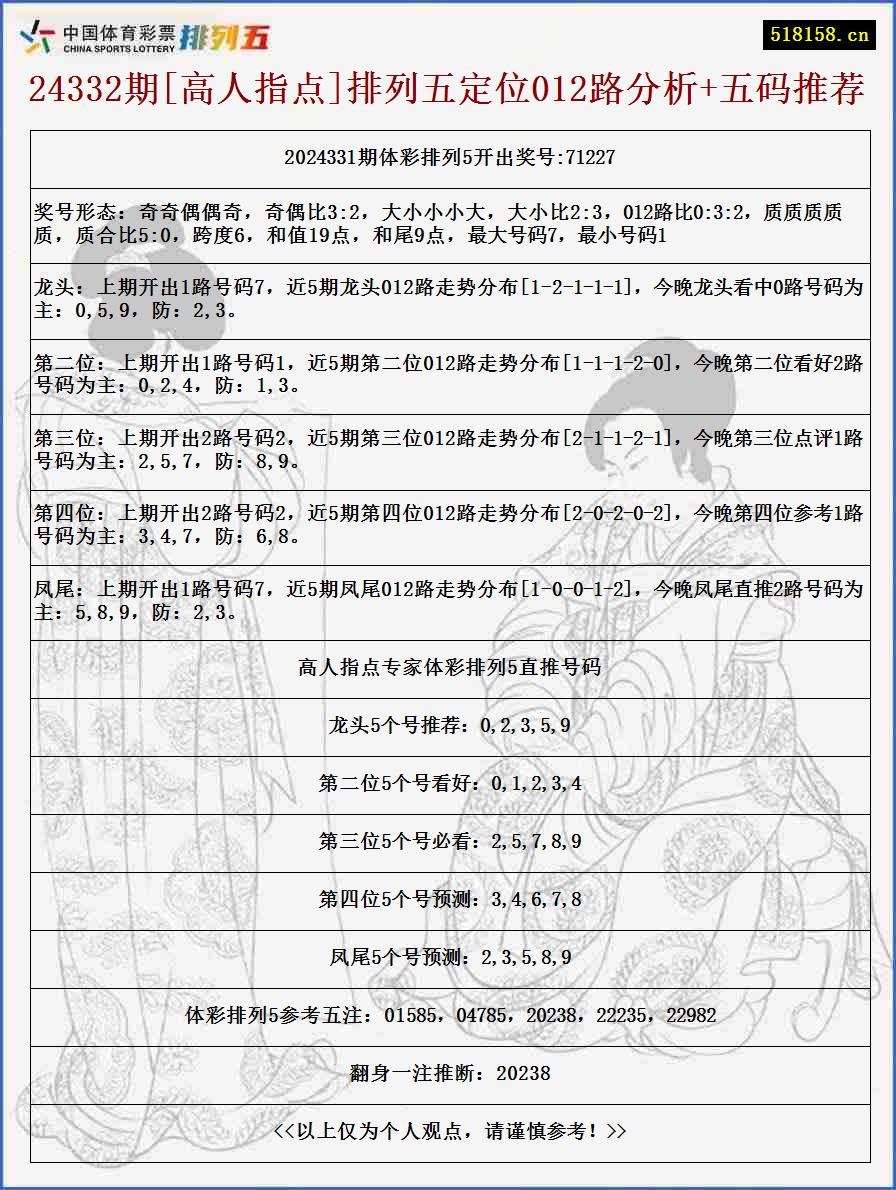 中国体育彩票 排列五
CHINA SPORTS LOTTERY
518158.cn
24332期[高人指点]排列五定位012路分析+五码推荐
2024331期体彩排列5开出奖号:71227
奖号形态：奇奇偶偶奇，奇偶比3:2，大小小小大，大小比2:3，012路比0:3:2，质质质质
质，质合比5:0，跨度6，和值19点，和尾9点，最大号码7，最小号码1
龙头：上期开出1路号码7，近5期龙头012路走势分布[1-2-1-1-1]，今晚龙头看中0路号码为
主：0,5,9，防：2,3。
第二位：上期开出1路号码1，近5期第二位012路走势分布[1-1-1-2-0]，今晚第二位看好2路
号码为主：0,2,4，防：1,3。
第三位：上期开出2路号码2，近5期第三位012路走势分布[2-1-1-2-1]，今晚第三位点评1路
号码为主：2,5,7，防：8,9。
第四位：上期开出2路号码2，近5期第四位012路走势分布[2-0-2-0-2]，今晚第四位参考1路
号码为主：3,4,7，防：6,8。
凤尾：上期开出1路号码7，近5期凤尾012路走势分布[1-0-0-1-2]，今晚凤尾直推2路号码为
主：5,8,9，防：2,3。
高人指点专家体彩排列5直推号码
龙头5个号推荐：0,2,3,5,9
第二位5个号看好：0,1,2,3,4
第三位5个号必看：2,5,7,8,9
第四位5个号预测：3,4,6,7,8
凤尾5个号预测：2,3,5,8,9
体彩排列5参考五注：01585，04785，20238，22235，22982
翻身一注推断：20238
<<以上仅为个人观点，请谨慎参考！>>